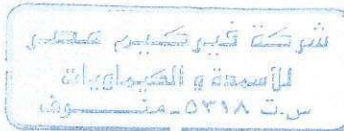 شركة فيركيم مصر
للأسمدة و الكيماويات
س.ت ٥٣١٨ - منوف